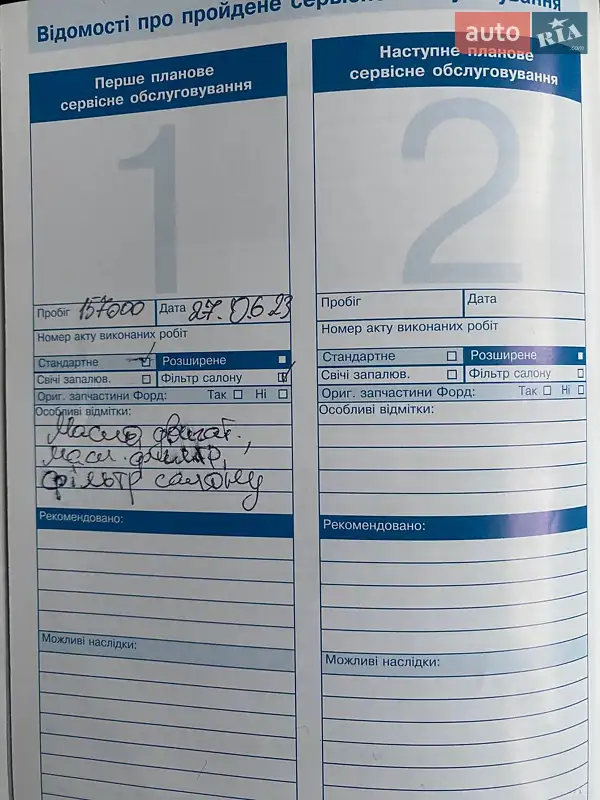 Відомості про пройдене сервісне обслуговування
auto RIA.com
Перше планове
сервісне обслуговування
1
Пробіг 157000 Дата 27.06.23
Номер акту виконаних робіт
Стандартне Розширене
Свічі запалюв. Фільтр салону
Ориг. запчастини Форд: Так Ні
Особливі відмітки:
Масло двигат.,
масл. фильтр,
фільтр салону
Рекомендовано:
Можливі наслідки:
Наступне планове
сервісне обслуговування
2
Пробіг Дата
Номер акту виконаних робіт
Стандартне Розширене
Свічі запалюв. Фільтр салону
Ориг. запчастини Форд: Так Ні
Особливі відмітки:
Рекомендовано:
Можливі наслідки: